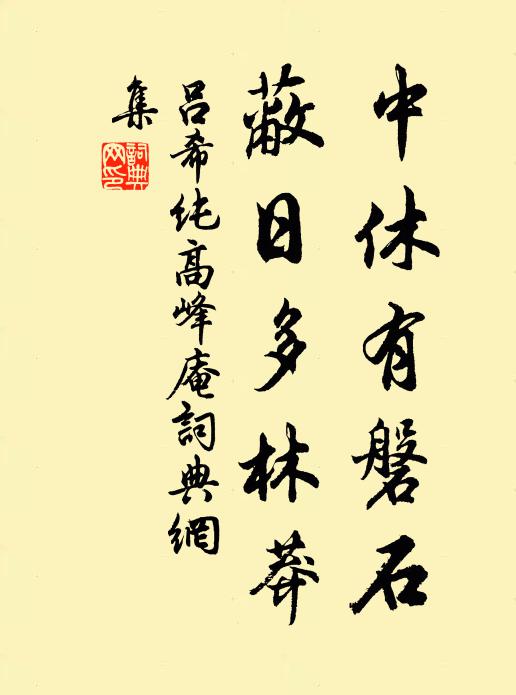 中休有磐石
蔽日多林莽
呂希純高峰庵詞典網
集
詞典
网印